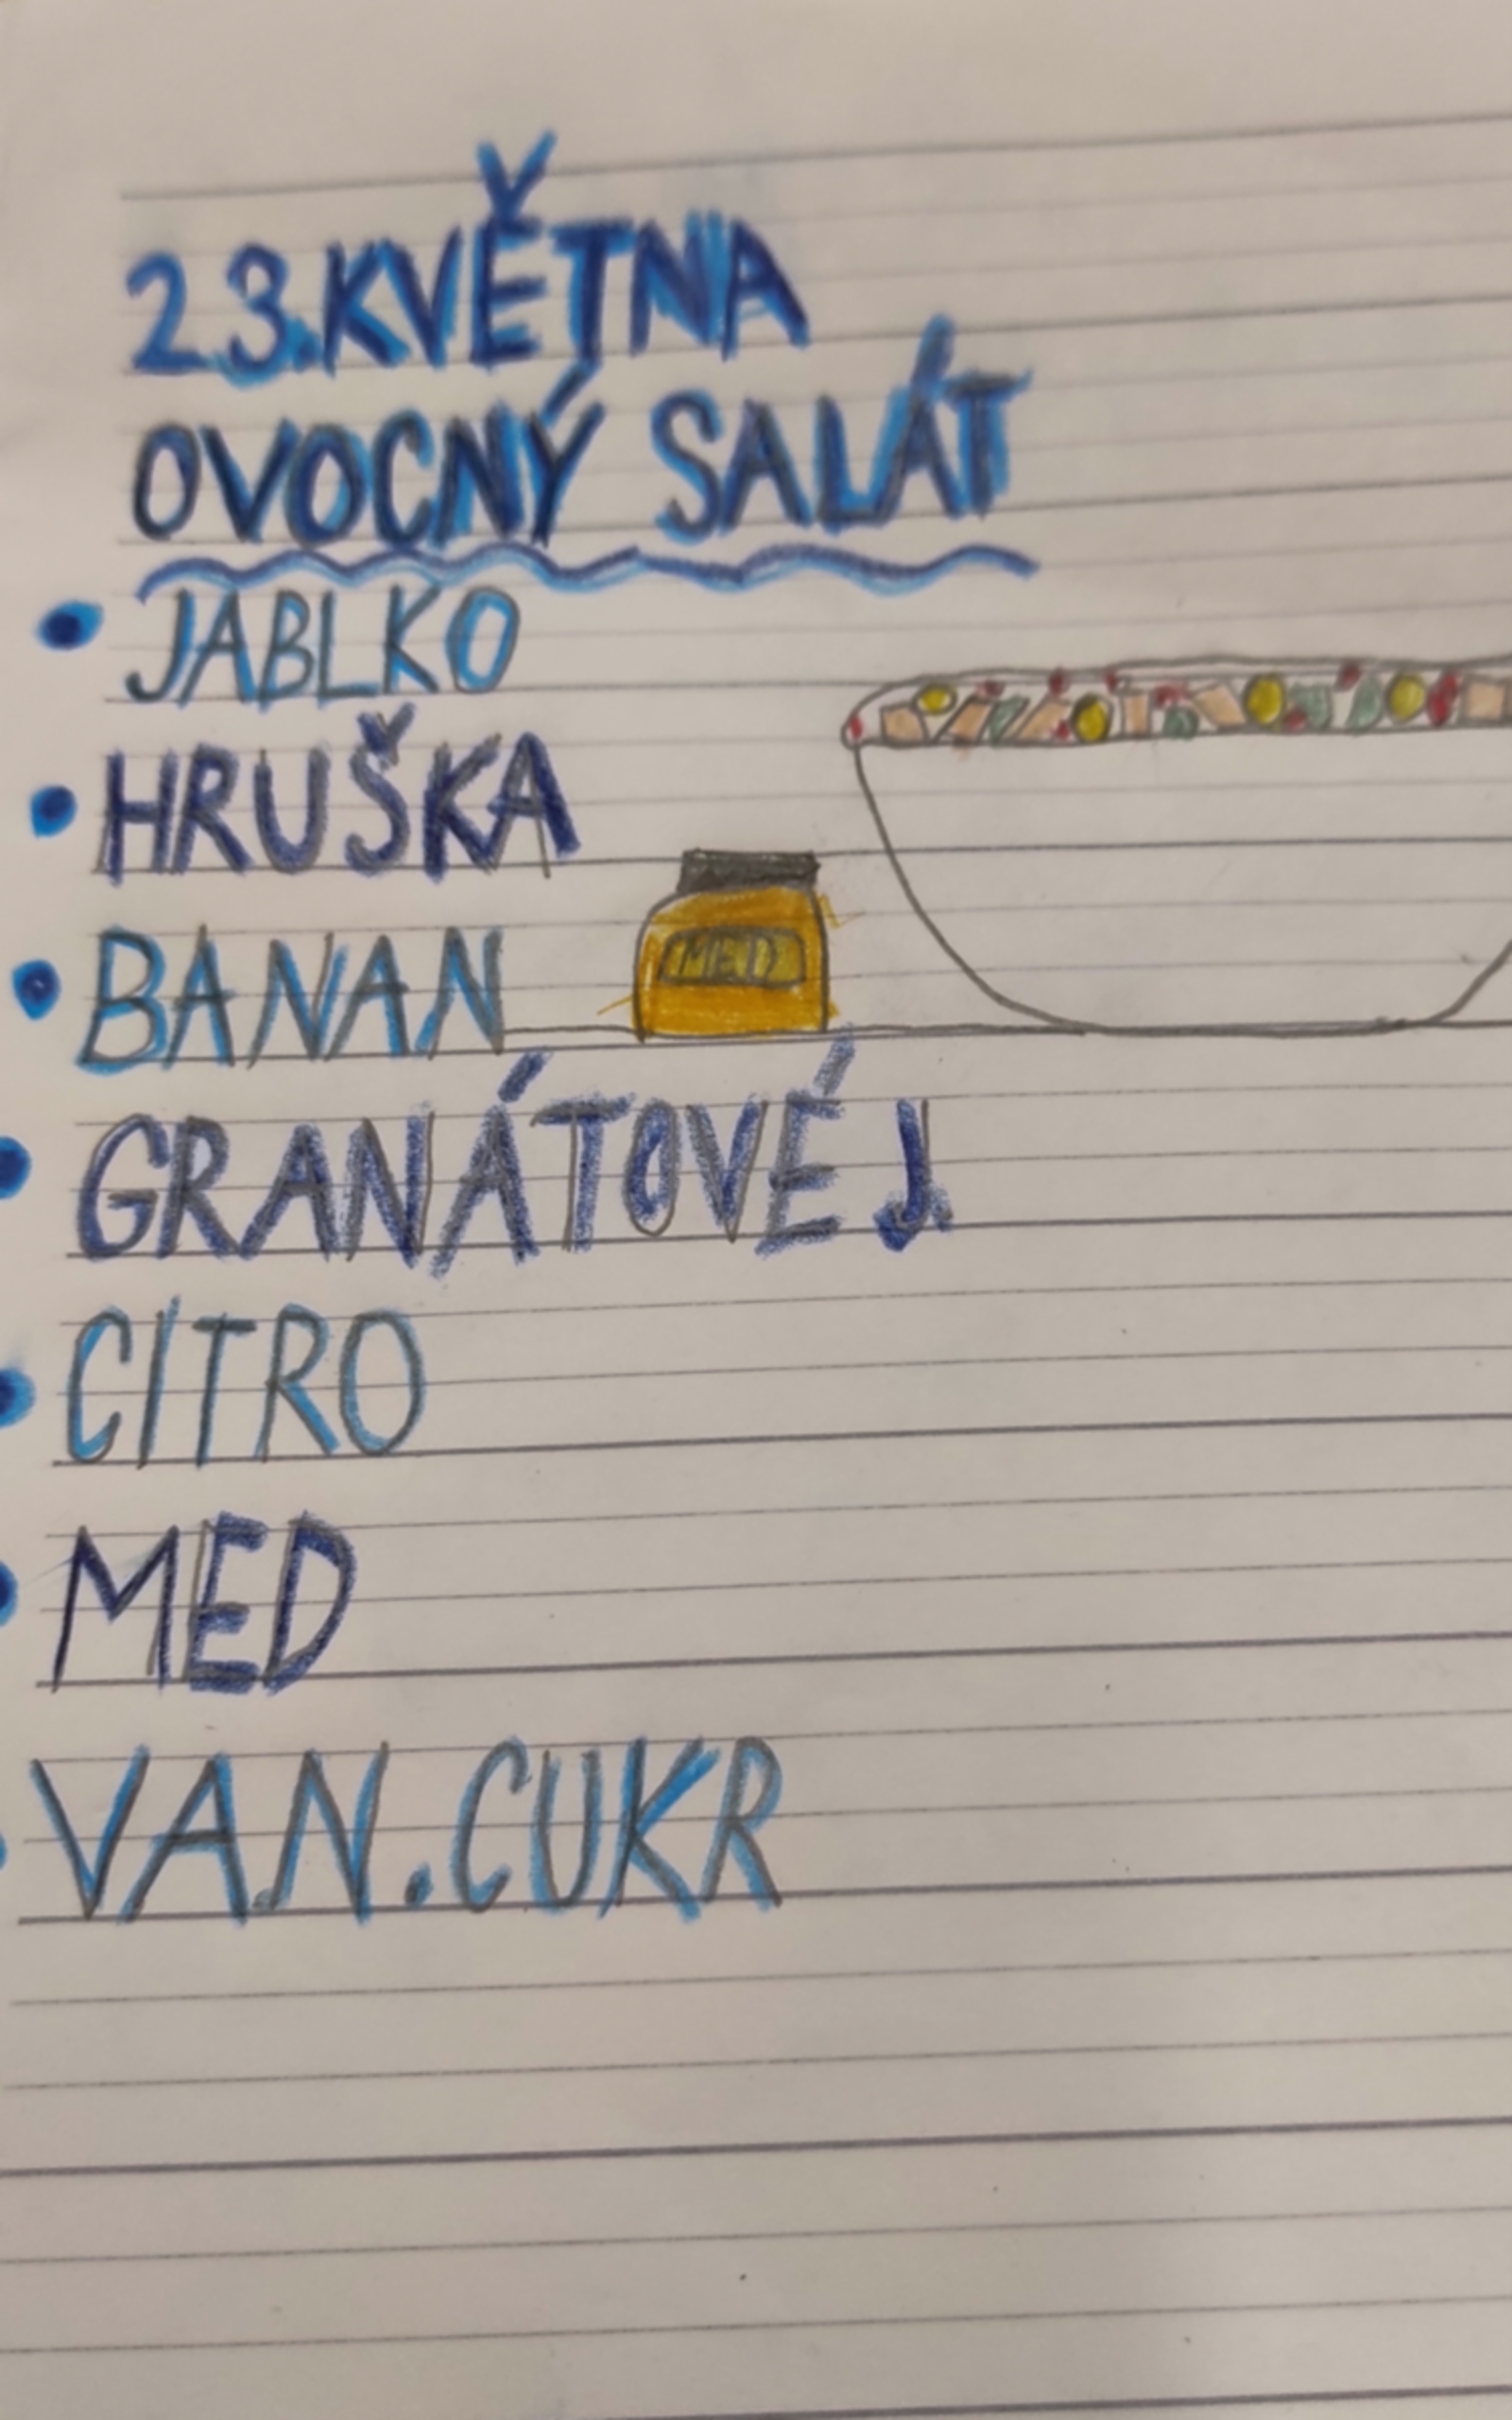 23.KVĚTNA
OVOCNÝ SALÁT
• JABLKO
• HRUŠKA
• BANAN
MED
• GRANÁTOVÉ J.
• CITRO
• MED
• VAN.CUKR